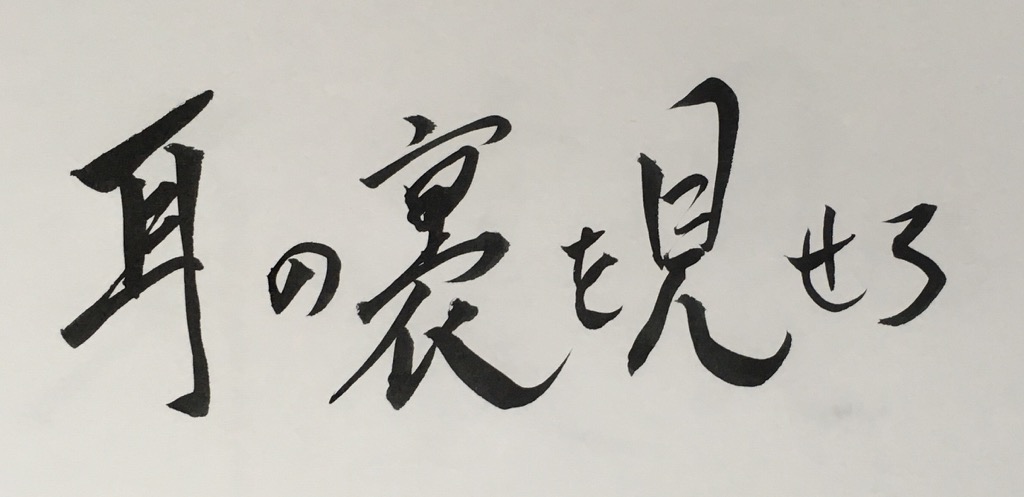 耳の裏を見せろ